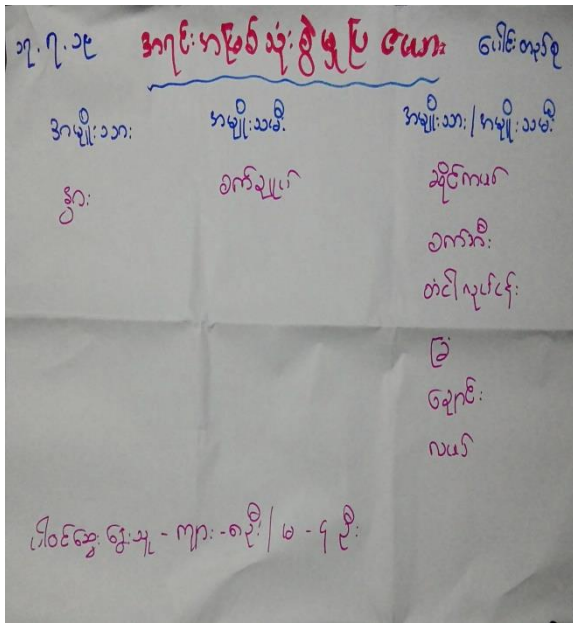 ၁၇.၇.၁၉ အရင်းအမြစ်သုံးစွဲမှုပြဇယား ပေါင်းတည်စု
အမျိုးသား အမျိုးသမီး အမျိုးသား/အမျိုးသမီး
နွား စက်ချုပ် ဆိုင်ကယ်
စက်ဘီး
တံငါလုပ်ငန်း
ခြံ
ချောင်း
လယ်
ပါဝင်ဆွေးနွေးသူ - ကျား - ၈ဦး/မ - ၄ ဦး